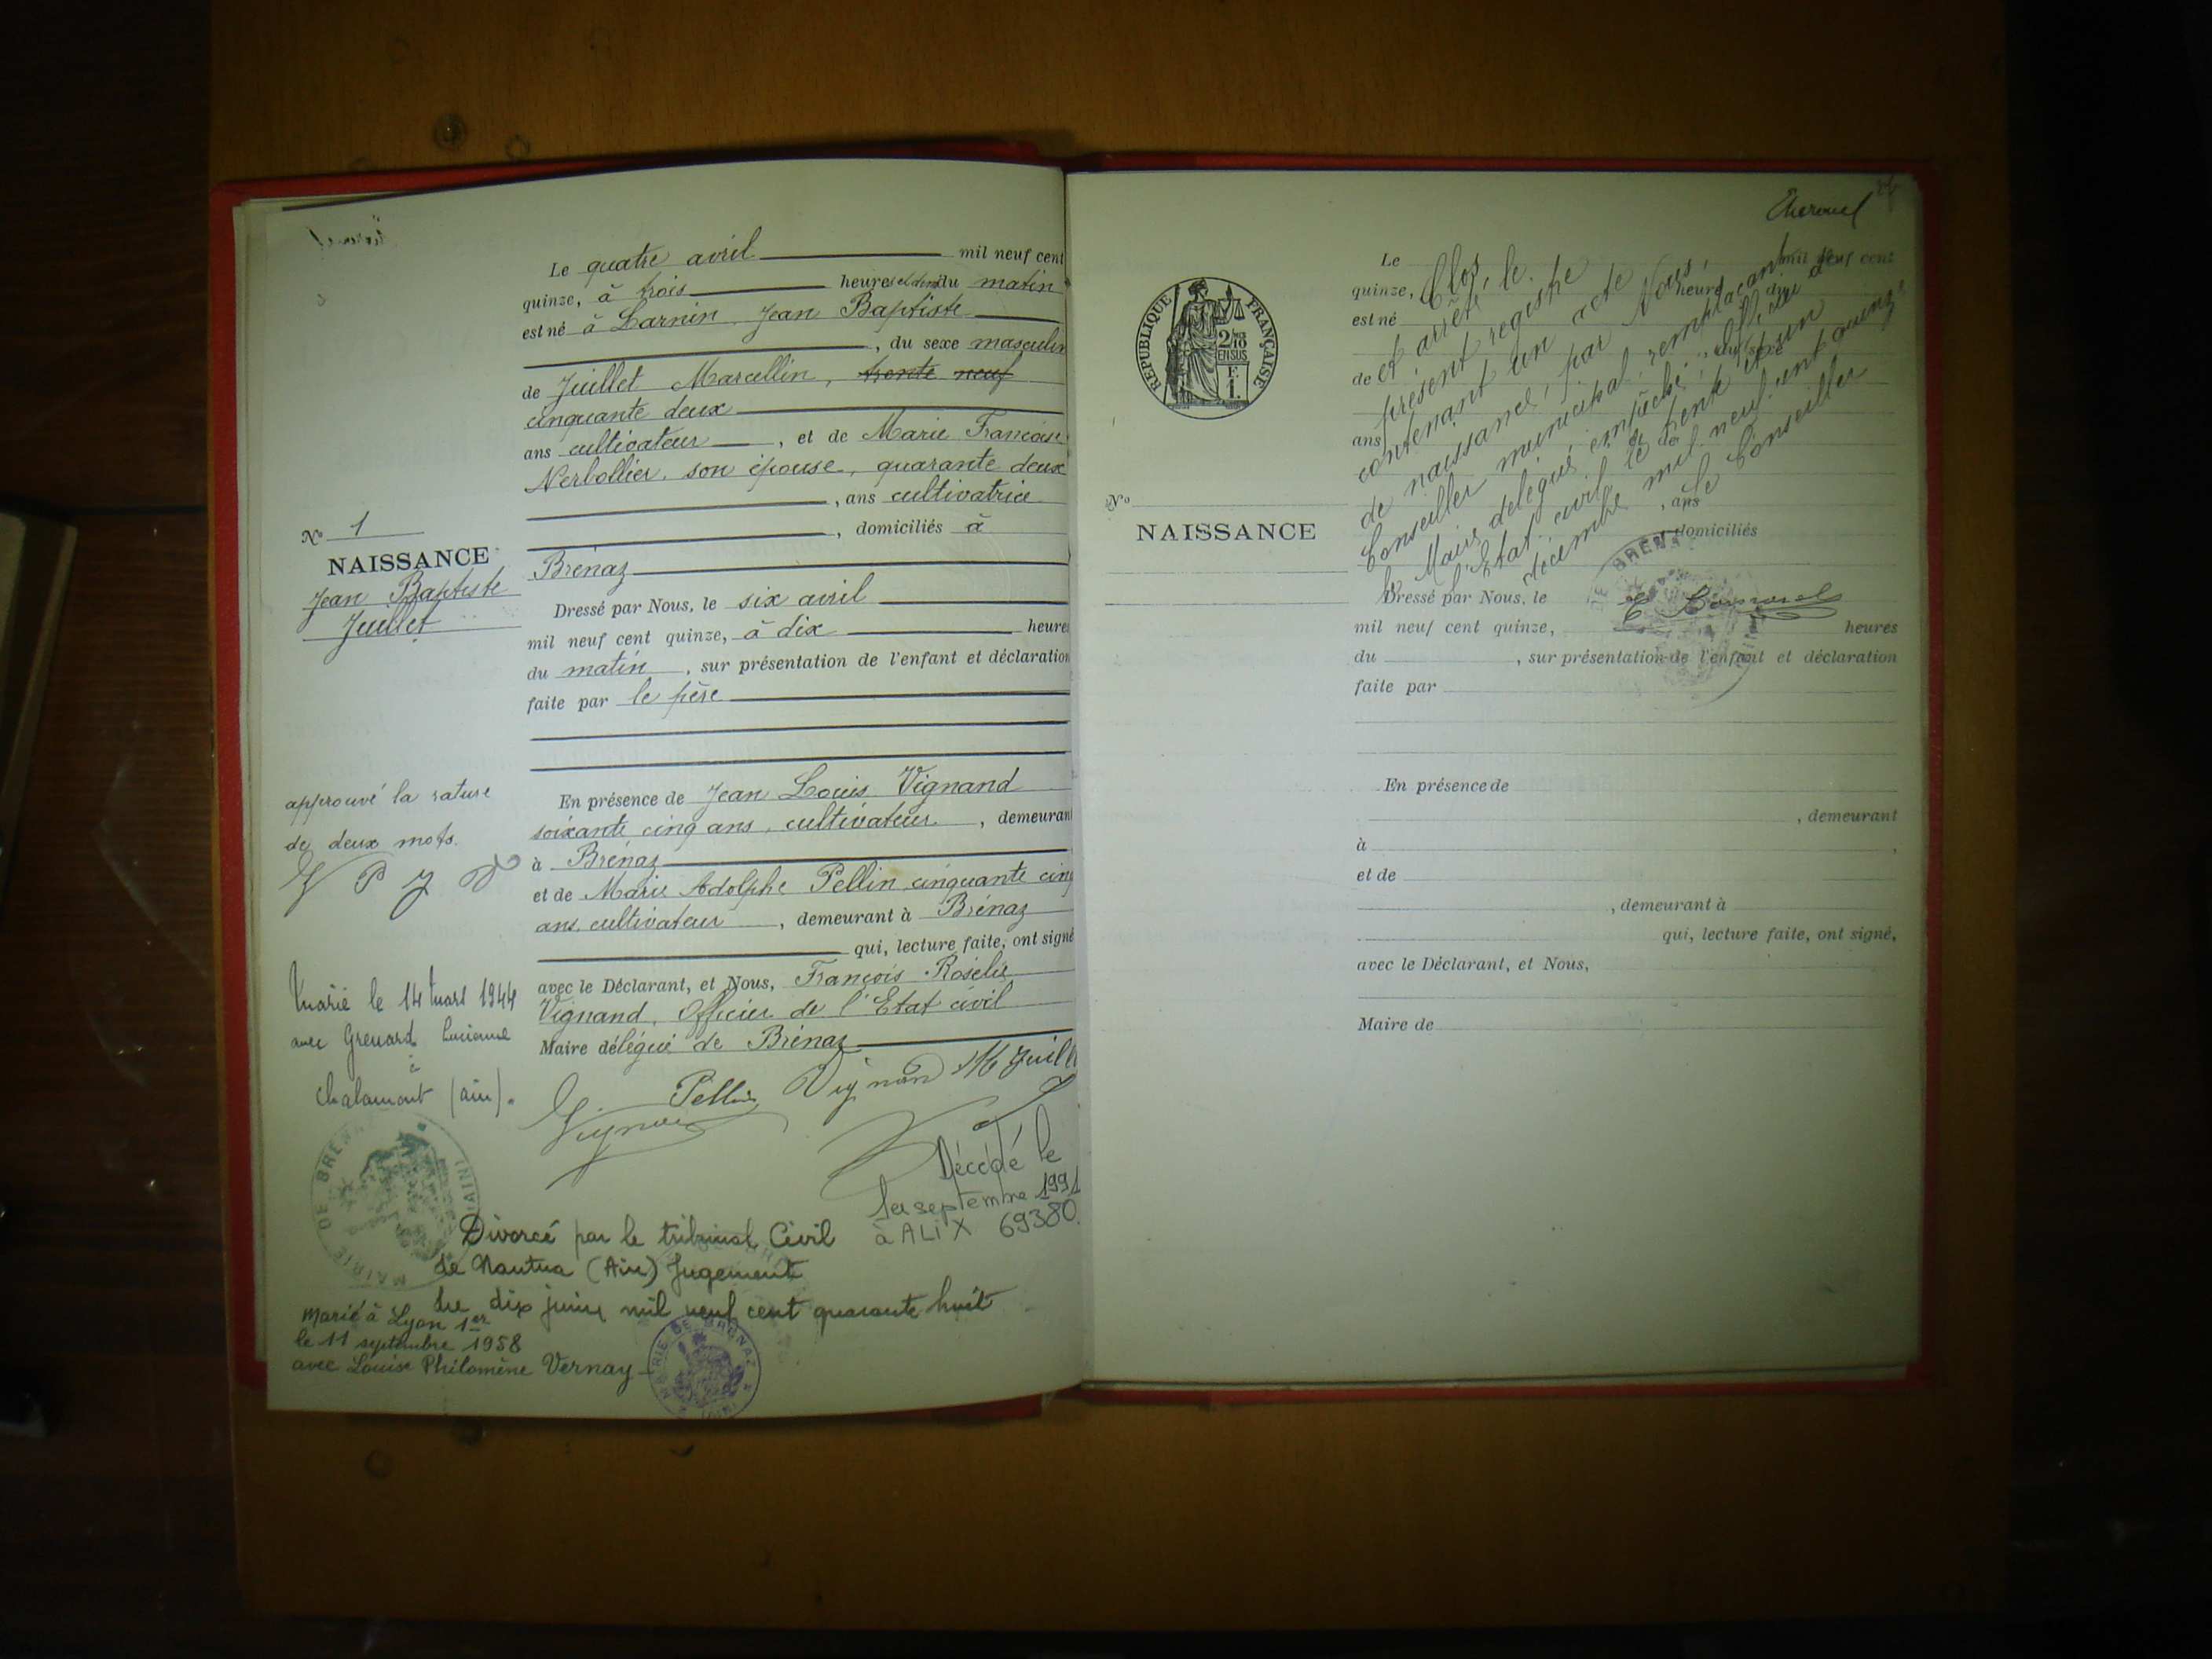 Le quatre avril mil neuf cent
quinze, à trois heures et demi du matin
est né à Larnin Jean Baptiste
, du sexe masculin
de Juillet Marcellin, trente neuf
cinquante deux
ans cultivateur, et de Marie Françoise
Nerbollier, son épouse, quarante deux
, ans cultivatrice
, domiciliés à
Brénaz
Dressé par Nous, le six avril
mil neuf cent quinze, à dix heures
du matin, sur présentation de l'enfant et déclaration
faite par le père
En présence de Jean Louis Vignand
soixante cinq ans, cultivateur, demeurant
à Brénaz
et de Marie Adolphe Pellin cinquante cinq
ans, cultivateur, demeurant à Brénaz
qui, lecture faite, ont signé
avec le Déclarant, et Nous, François Rosélie
Vignand, Officier de l'Etat civil
Maire délégué de Brénaz
Pellin Vignand M Juillet
Vignand
No 1
NAISSANCE
Jean Baptiste
Juillet
approuvé la rature
de deux mots.
V P J V
Marié le 14 mars 1944
avec Grenard Lucienne
à
Chalamont (ain).
MAIRIE DE BRENAZ (AIN)
Décédé le
1er septembre 1991
à ALIX 69380
Divorcé par le tribunal Civil
de Nantua (Ain) Jugement
du dix juin mil neuf cent quarante huit
Marié à Lyon 1er
le 11 septembre 1958
avec Louise Philomène Vernay
MAIRIE DE BRENAZ (AIN)
REPUBLIQUE FRANÇAISE
2/10
EN SUS
No
NAISSANCE
Le mil neuf cent
quinze, heure du
est né
du sexe
de
ans
, ans
domiciliés
Clos, le
et arrêté
présent registre
contenant un acte
de naissance, par Nous,
Conseiller municipal, remplaçant
le Maire délégué empêché, officier de
l'Etat civil, le trente et un
décembre mil neuf cent quinze
le Conseiller
DE BRENAZ
Dressé par Nous, le
mil neuf cent quinze, heures
du , sur présentation de l'enfant et déclaration
faite par
En présence de
, demeurant
à
et de
, demeurant à
qui, lecture faite, ont signé,
avec le Déclarant, et Nous,
Maire de